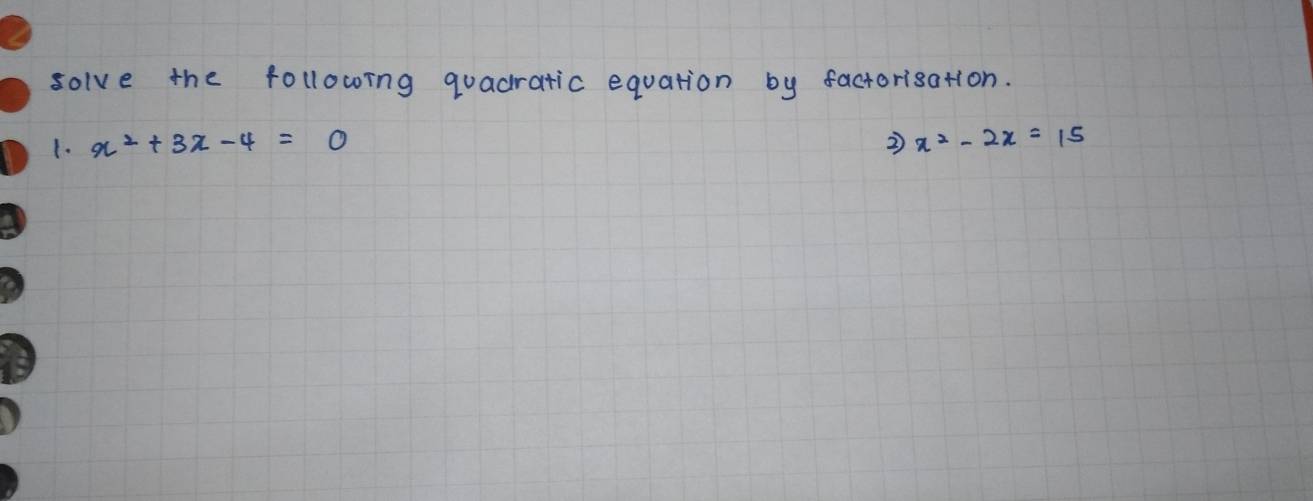 solve the following quadratic equation by factorisation.
1. x² + 3x - 4 = 0 2) x² - 2x = 15